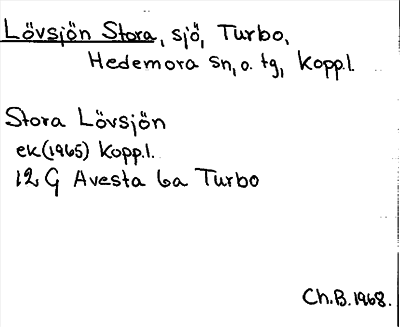 Lövsjön Stora, sjö, Turbo,
Hedemora sn, o. tg, Kopp.l.
Stora Lövsjön
ek (1965) Kopp.l.
12 G Avesta 6a Turbo
Ch.B. 1968.